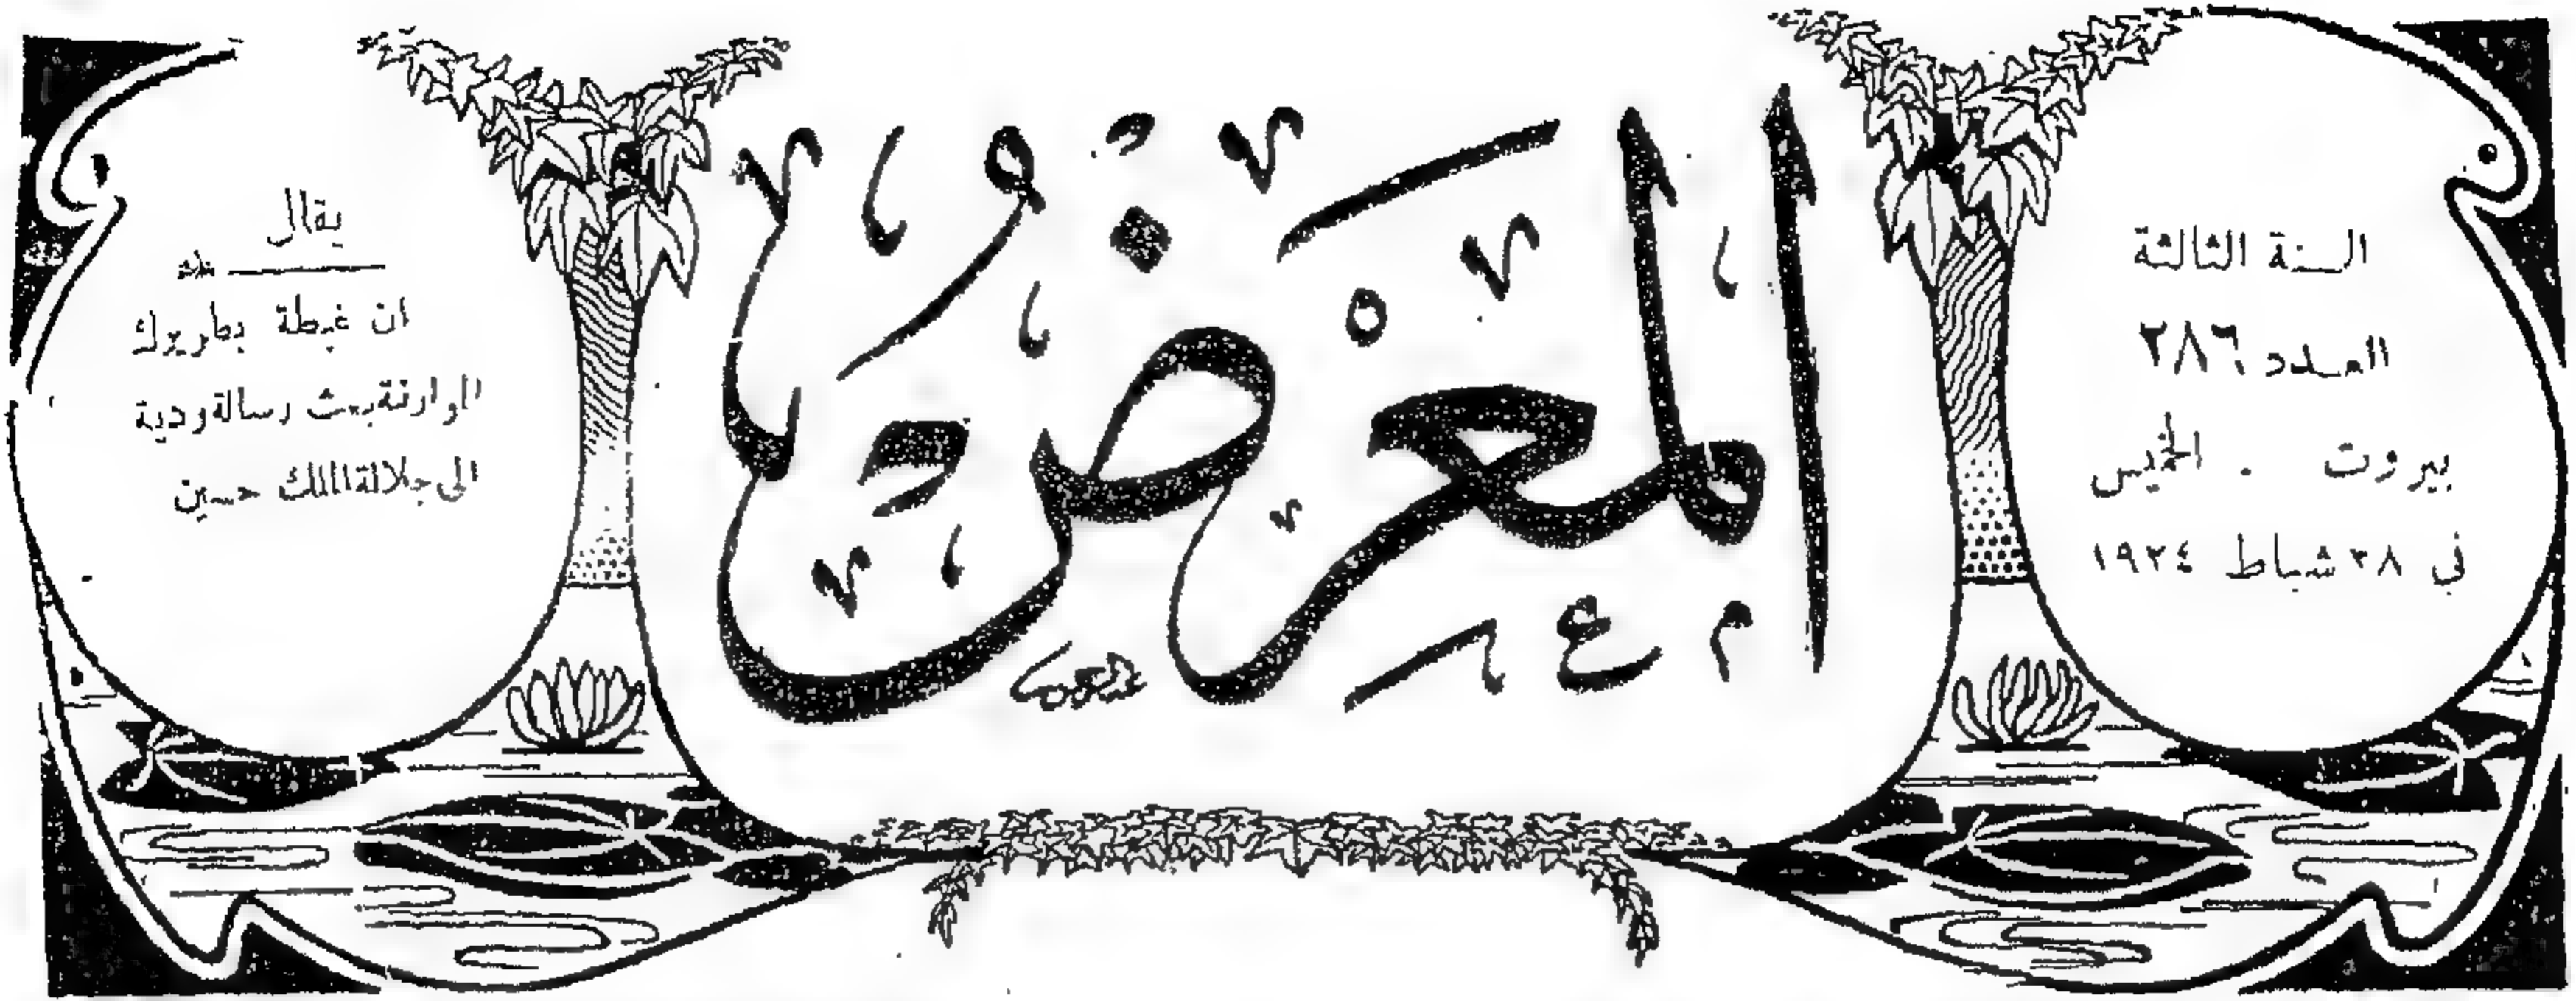 السنة الثالثة
العدد ٢٨٦
بيروت . الخميس
في ٢٨ شباط ١٩٢٤
المعرض
يقال
ان غبطة بطريرك
الموارنة بعث رسالة ودية
الى جلالة الملك حسين